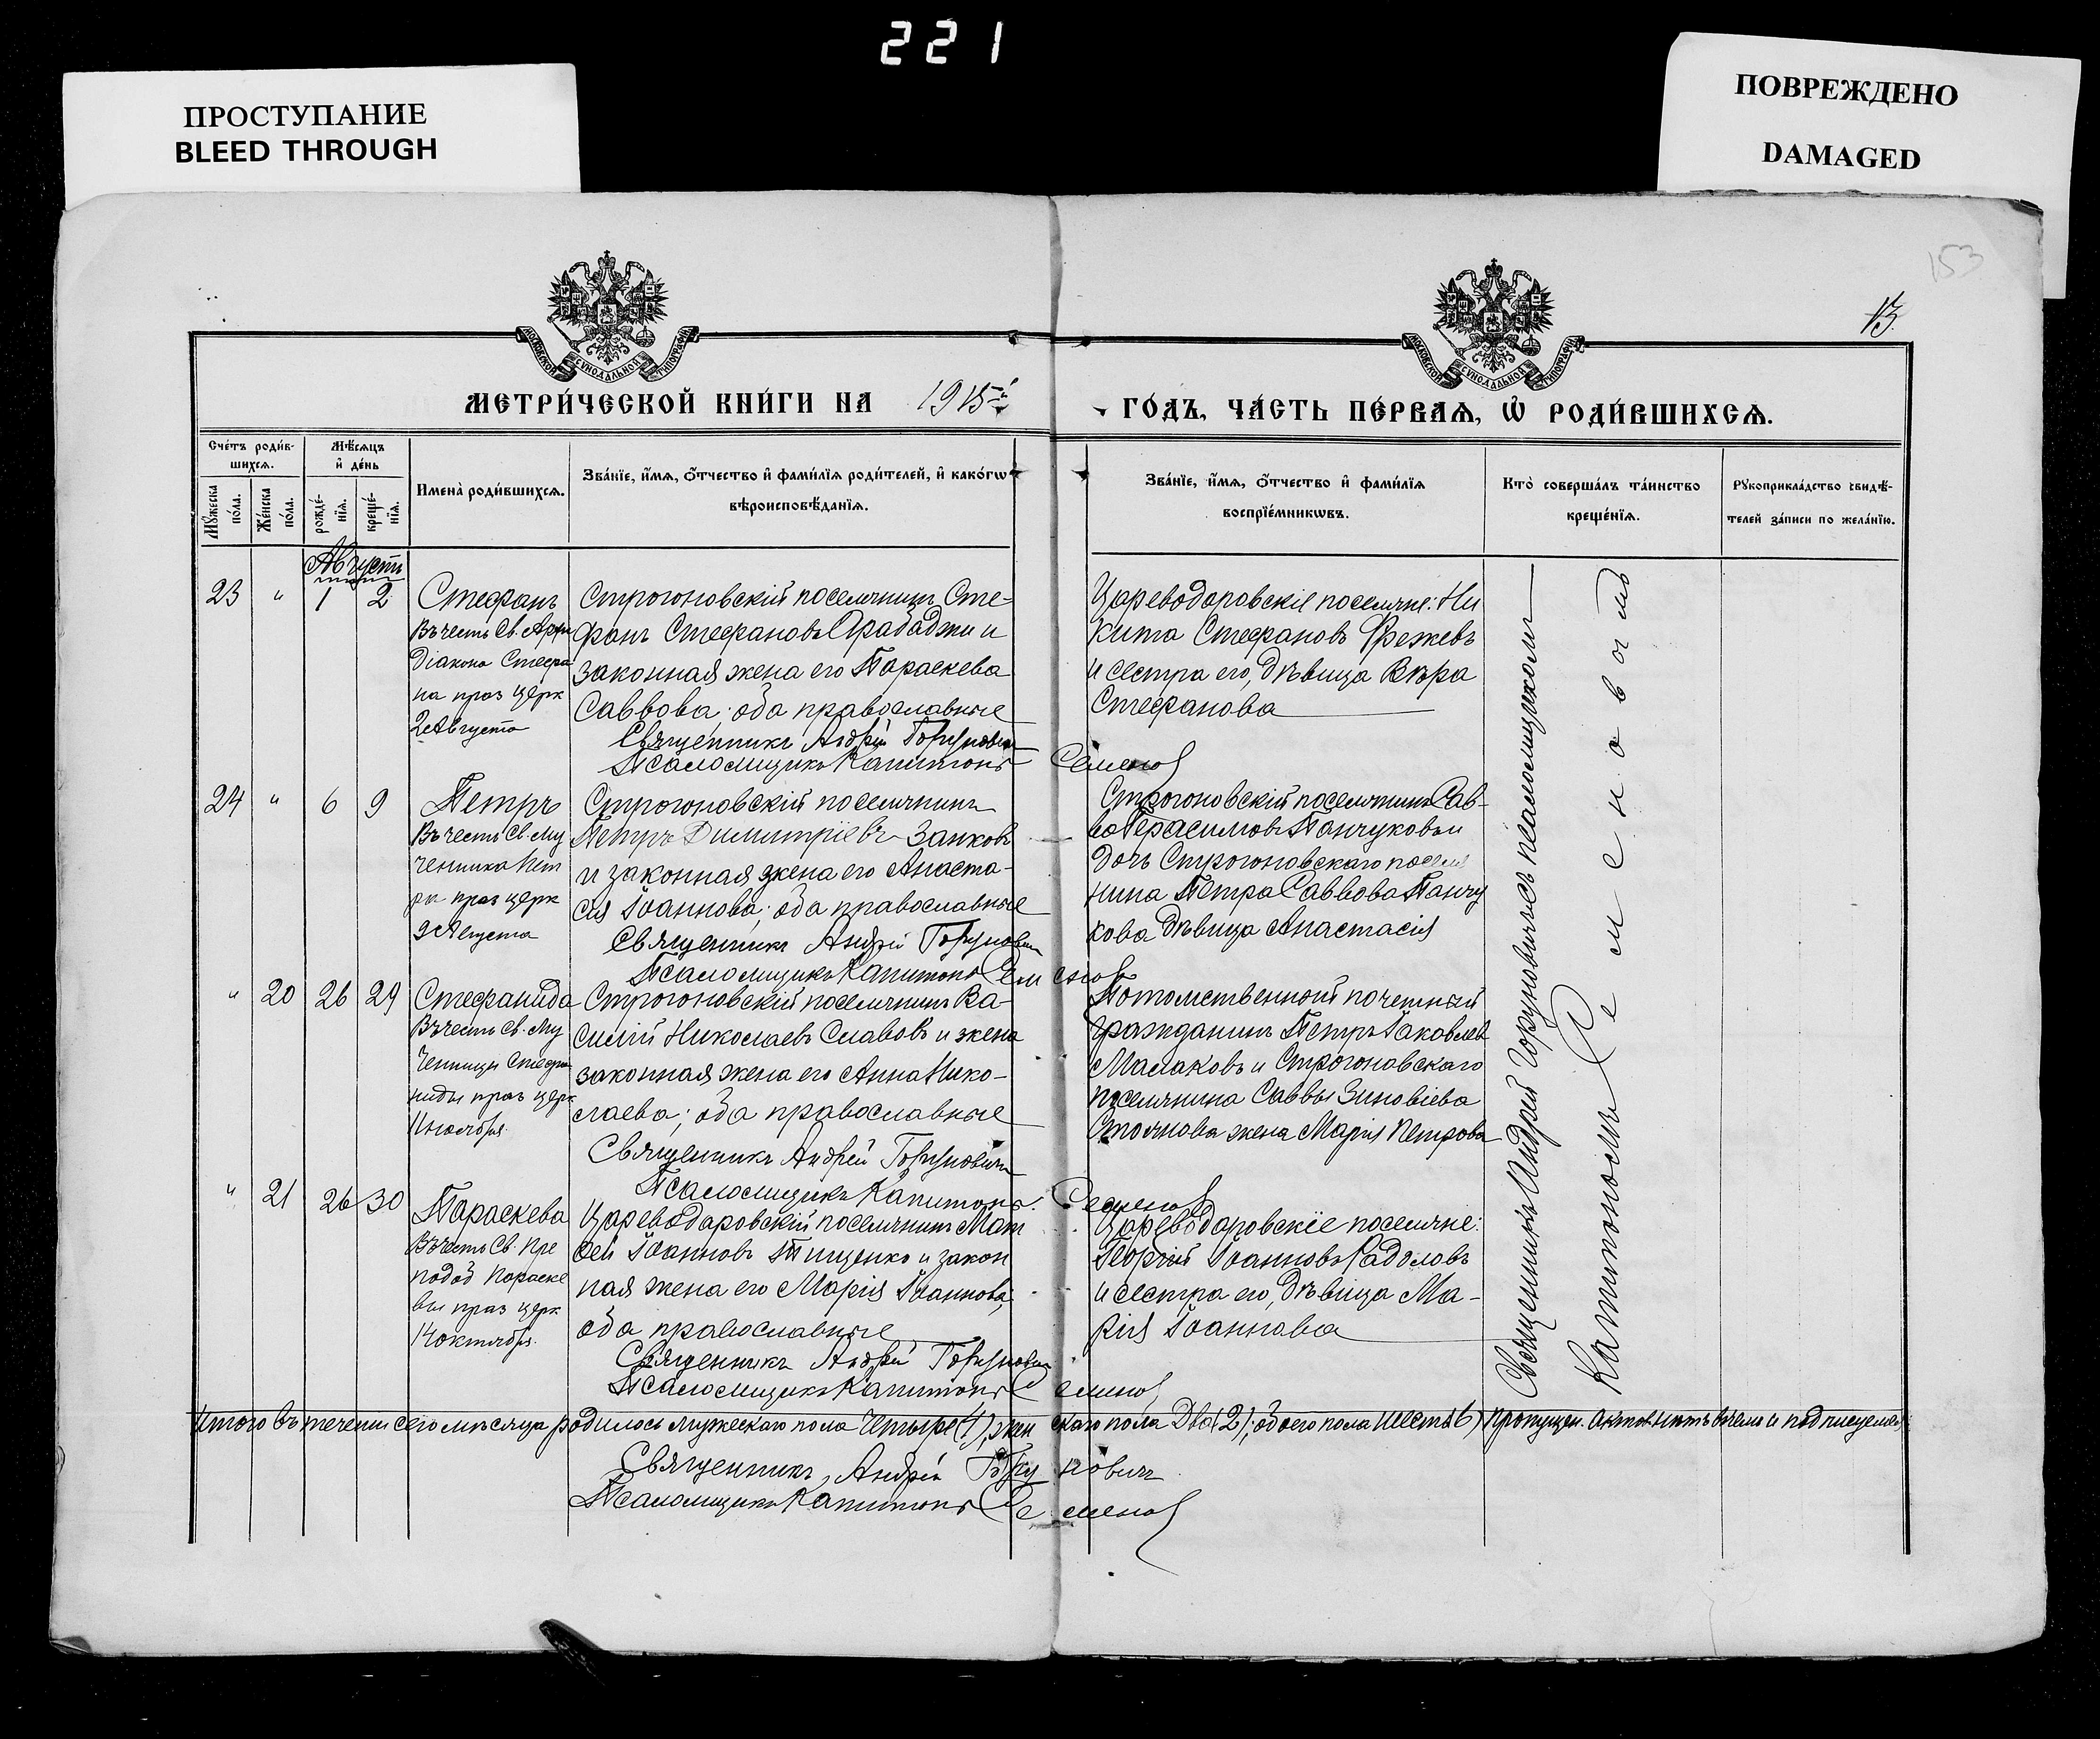 221
ПРОСТУПАНИЕ
BLEED THROUGH
ПОВРЕЖДЕНО
DAMAGED
153
13.
МОСКОВСКОЙ СѴНОДАЛЬНОЙ ТИПОГРАФІИ
МОСКОВСКОЙ СѴНОДАЛЬНОЙ ТИПОГРАФІИ
МЕТРИ́ЧЕСКОЙ КНИ́ГИ НА 1915й
ГО́ДЪ, ЧА́СТЬ ПЕ́РВАѦ, Ѡ҆ РОДИ́ВШИХСѦ.
Сче́тъ роди́в-
шихсѧ.
Мѣ́сѧцъ
и҆ де́нь
Мꙋ́жеска
по́ла.
Же́нска
по́ла.
рожде́-
нїѧ.
креще́-
нїѧ.
Имена̀ роди́вшихсѧ.
Зва́нїе, и҆́мѧ, ѻ҆́тчество и҆ фами́лїѧ роди́телей, и҆ како́гѡ
вѣроисповѣ́данїѧ.
Зва́нїе, и҆́мѧ, ѻ҆́тчество и҆ фами́лїѧ
воспрїе́мникѡвъ.
Кто̀ соверша́лъ та́инство
креще́нїѧ.
Рꙋкоприкла́дство свидѣ́-
телей за́писи по жела́нїю.
Августъ
23 " 1 2
Стефанъ
Въ честь Св. Архи
діакона Стефа
на праз церк
2 Августа
Строгоновскій поселянинъ Сте-
фанъ Стефановъ Арабаджи и
законная жена его Параскева
Саввова; оба православные
Священникъ Андрей Горуновичъ
Псаломщикъ Капитонъ Семенов
Цареводаровскіе поселяне: Ни
кита Стефановъ Фрежевъ
и сестра его, дѣвица Вѣра
Стефанова
24 " 6 9
Петръ
Въ честь Св. Му
ченника Пет
ра праз церк
9 Августа
Строгоновскій поселянинъ
Петръ Димитріевъ Занковъ
и законная жена его Анаста-
сія Іоаннова; оба православные
Священникъ Андрей Горуновичъ
Псаломщикъ Капитонъ Семенов
Строгоновскій поселянинъ Сав-
ва Герасимовъ Панчуковъ и
дочь Строгоновскаго поселя
нина Петра Саввова Панчу
кова дѣвица Анастасія
" 20 26 29
Стефанида
Въ честь Св. Му
ченицы Стефа
ниды праз церк
11 ноября
Строгоновскій поселянинъ Ва-
силій Николаевъ Славовъ и жена
законная жена его Анна Нико-
лаева; оба православные
Священникъ Андрей Горуновичъ
Псаломщикъ Капитонъ Семенов
Потомственной почетный
гражданинъ Петръ Іаковлев
Малаковъ и Строгоновскаго
поселянина Саввы Зиновіева
Стоянова жена Марія Петрова
" 21 26 30
Параскева
Въ честь Св. Пре
подоб Параске
вы праз церк
14 октября.
Цареводаровскій поселянинъ Мат
ѳей Іоанновъ Тищенко и закон
ная жена его Марія Іоаннова;
оба православные
Священникъ Андрей Горуновичъ
Псаломщикъ Капитонъ Семенов
Цареводаровскіе поселяне:
Георгій Іоанновъ Радоловъ
и сестра его, дѣвица Ма-
рія Іоаннова
Священникъ Андрей Горуновичъ съ псаломщикомъ
Капитономъ Семеновымъ
Итого въ теченіи сего мѣсяца родилось мужескаго пола Четыре (4), жен скаго пола Два (2); обоего пола Шесть (6) Пропущен. Актов нѣтъ в чемъ и подписуемся:
Священникъ, Андрей Горуновичъ
Псаломщикъ Капитонъ Семенов